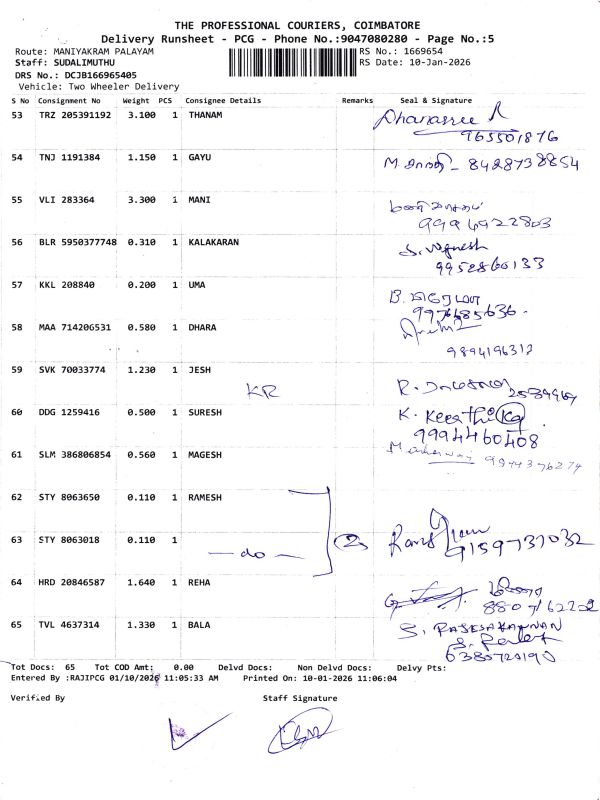 THE PROFESSIONAL COURIERS, COIMBATORE
Delivery Runsheet - PCG - Phone No.:9047080280 - Page No.:5
Route: MANIYAKRAM PALAYAM RS No.: 1669654
Staff: SUDALIMUTHU RS Date: 10-Jan-2026
DRS No.: DCJB166965405
Vehicle: Two Wheeler Delivery
S No Consignment No Weight PCS Consignee Details Remarks Seal & Signature
53 TRZ 205391192 3.100 1 THANAM Dhanasree R
965501876
54 TNJ 1191384 1.150 1 GAYU M. - 8428738854
55 VLI 283364 3.300 1 MANI
9994922803
56 BLR 5950377748 0.310 1 KALAKARAN S. Vignesh
9952860133
57 KKL 208840 0.200 1 UMA B.
9976685636.
58 MAA 714206531 0.580 1 DHARA
9894196312
59 SVK 70033774 1.230 1 JESH R.
KR
60 DDG 1259416 0.500 1 SURESH K. Keerthi
9994460408
61 SLM 386806854 0.560 1 MAGESH M
9944376274
62 STY 8063650 0.110 1 RAMESH
63 STY 8063018 0.110 1 (2)
— do — 9159737032
64 HRD 20846587 1.640 1 REHA
65 TVL 4637314 1.330 1 BALA S. RASESAKANNAN
6380720190
Tot Docs: 65 Tot COD Amt: 0.00 Delvd Docs: Non Delvd Docs: Delvy Pts:
Entered By :RAJIPCG 01/10/2026 11:05:33 AM Printed On: 10-01-2026 11:06:04
Verified By Staff Signature